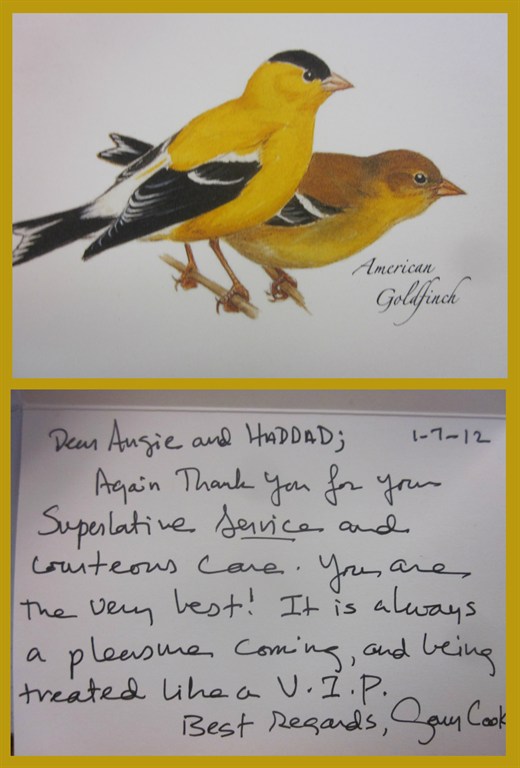 American
Goldfinch
Dear Angie and HADDAD; 1-7-12
Again Thank You for your
Superlative Service and
courteous care. You are
the very best! It is always
a pleasure coming, and being
treated like a V.I.P.
Best Regards, Cook